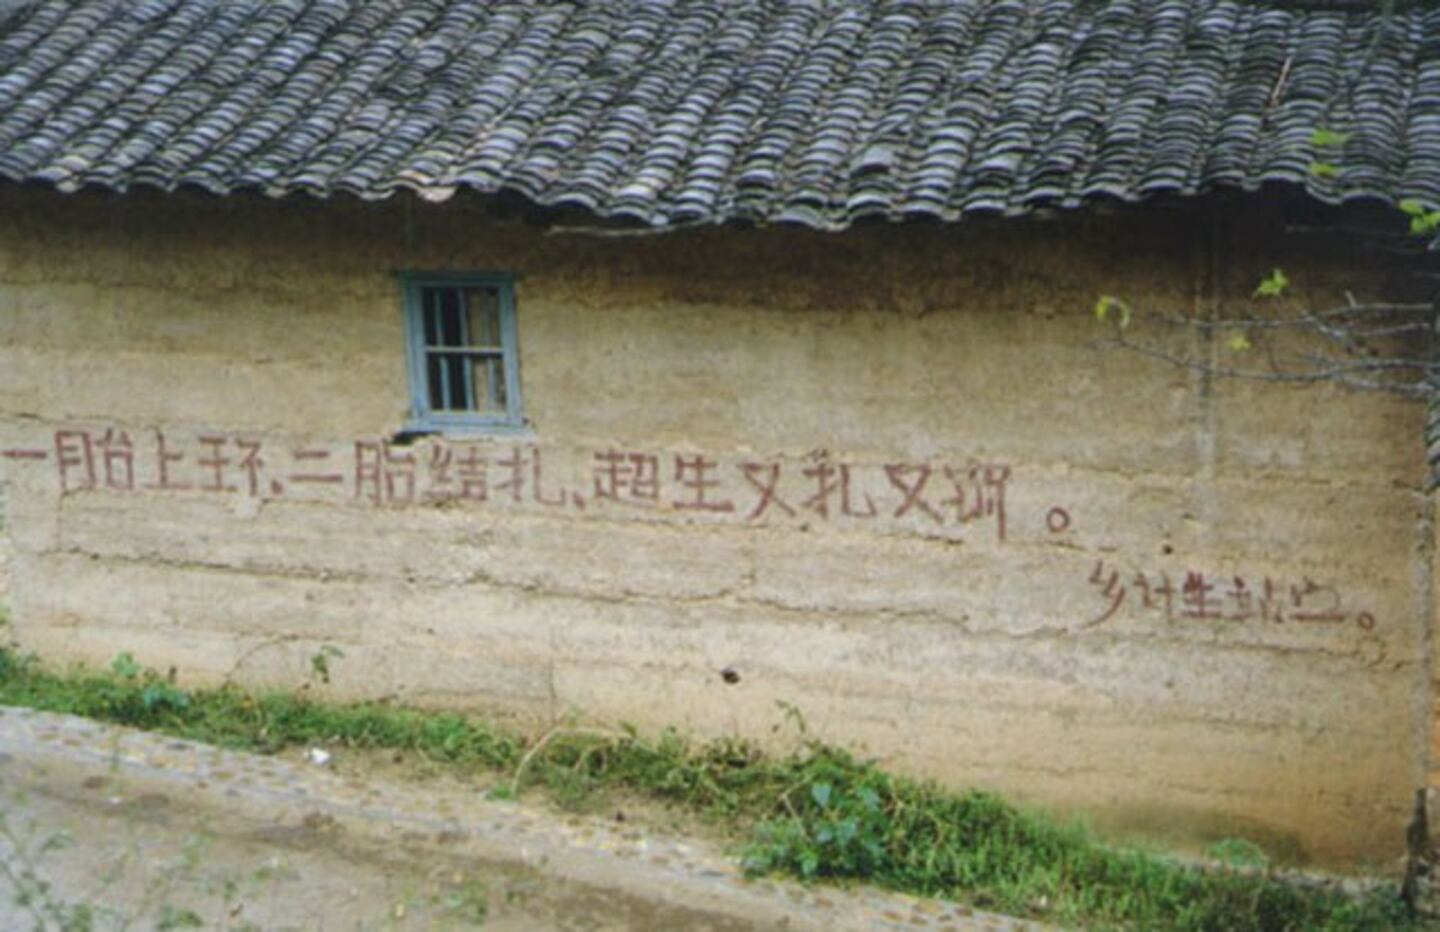 一胎上环、二胎结扎、超生又扎又罚。
乡计生站宣。